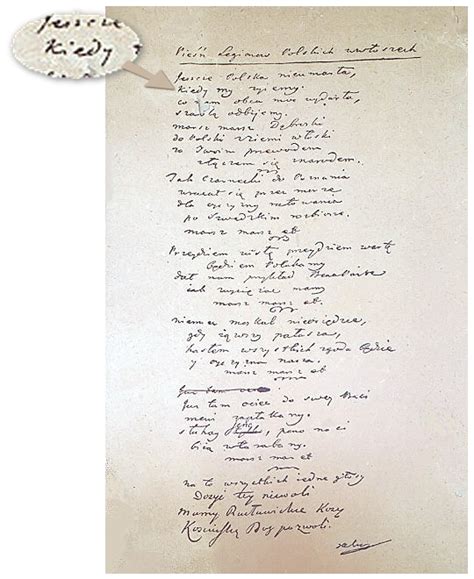 Jeszcze
Kiedy
Pieśń Legionow Polskich we włoszech
Jeszcze Polska nieumarła,
kiedy my żyiemy.
co nam obca moc wydarła,
szablą odbijemy.
marsz marsz Dąbroski
do Polski z ziemi włoski
za Twoim przewodem
złączem się z narodem.
Jak Czarnecki do Poznania
wracał się przez morze
dla oyczyzny ratowania
po Szwedzkim rozbiorze.
marsz marsz et
Przeydziem wisłę przeydziem wartę
będziem Polakamy
dał nam przykład Bonaparte
iak zwycięzać mamy
marsz marsz et.
niemiec moskal nieosiędzie,
gdy iąwszy pałasza,
hasłem wszystkich zgoda będzie
y oyczyzna nasza.
marsz marsz et
Jus tam ociec do swey Basi
mowi zapłakany.
słuchay ieno, pono nasi
biią w tarabany.
marsz marsz et
na to wszystkich iedne głosy
Dosyć tey niewoli
Mamy Racławickie Kosy
Kosciuszkę Bog pozwoli.